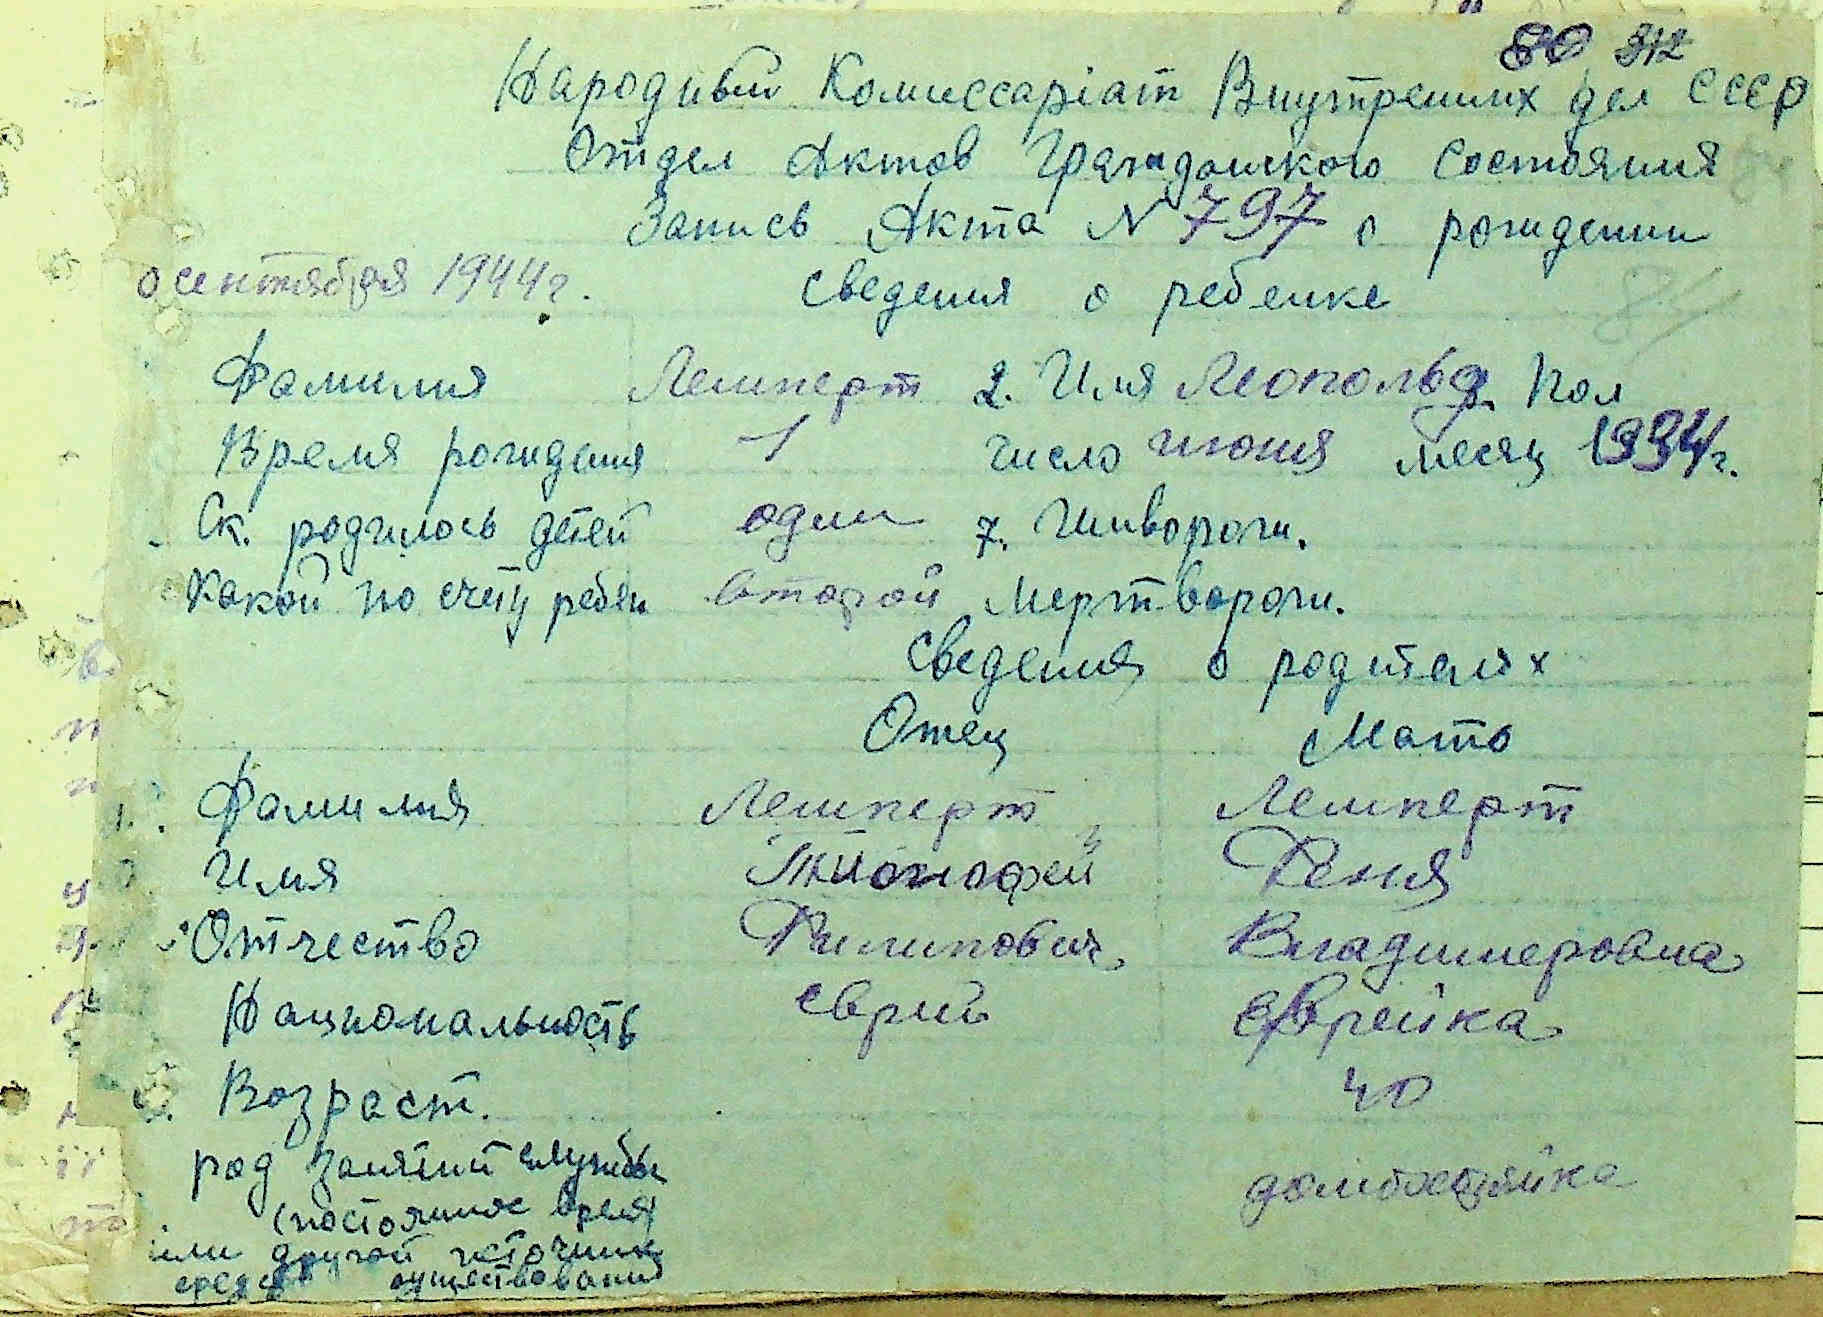 80 312
Народный Комиссаріат Внутренних дел СССР
Отдел Актов Гражданского Состояния
Запись Акта N 797 о рождении
сентября 1944г. Сведения о ребенке
84
Фамилия Лемперт 2. Имя Леопольд 3. Пол
Время рождения 1 число июня месяц 1934г.
Ск. родилось детей один 7. Живорож.
Какой по счету ребен второй Мертворож.
Сведения о родителях
Отец Мать
1. Фамилия Лемперт Лемперт
Имя Феня
Отчество Филипович Владимеровна
Национальность еврей еврейка
Возраст. 40
род занятий службы домохозяйка
(постоянное время)
или другой источник
средств существования